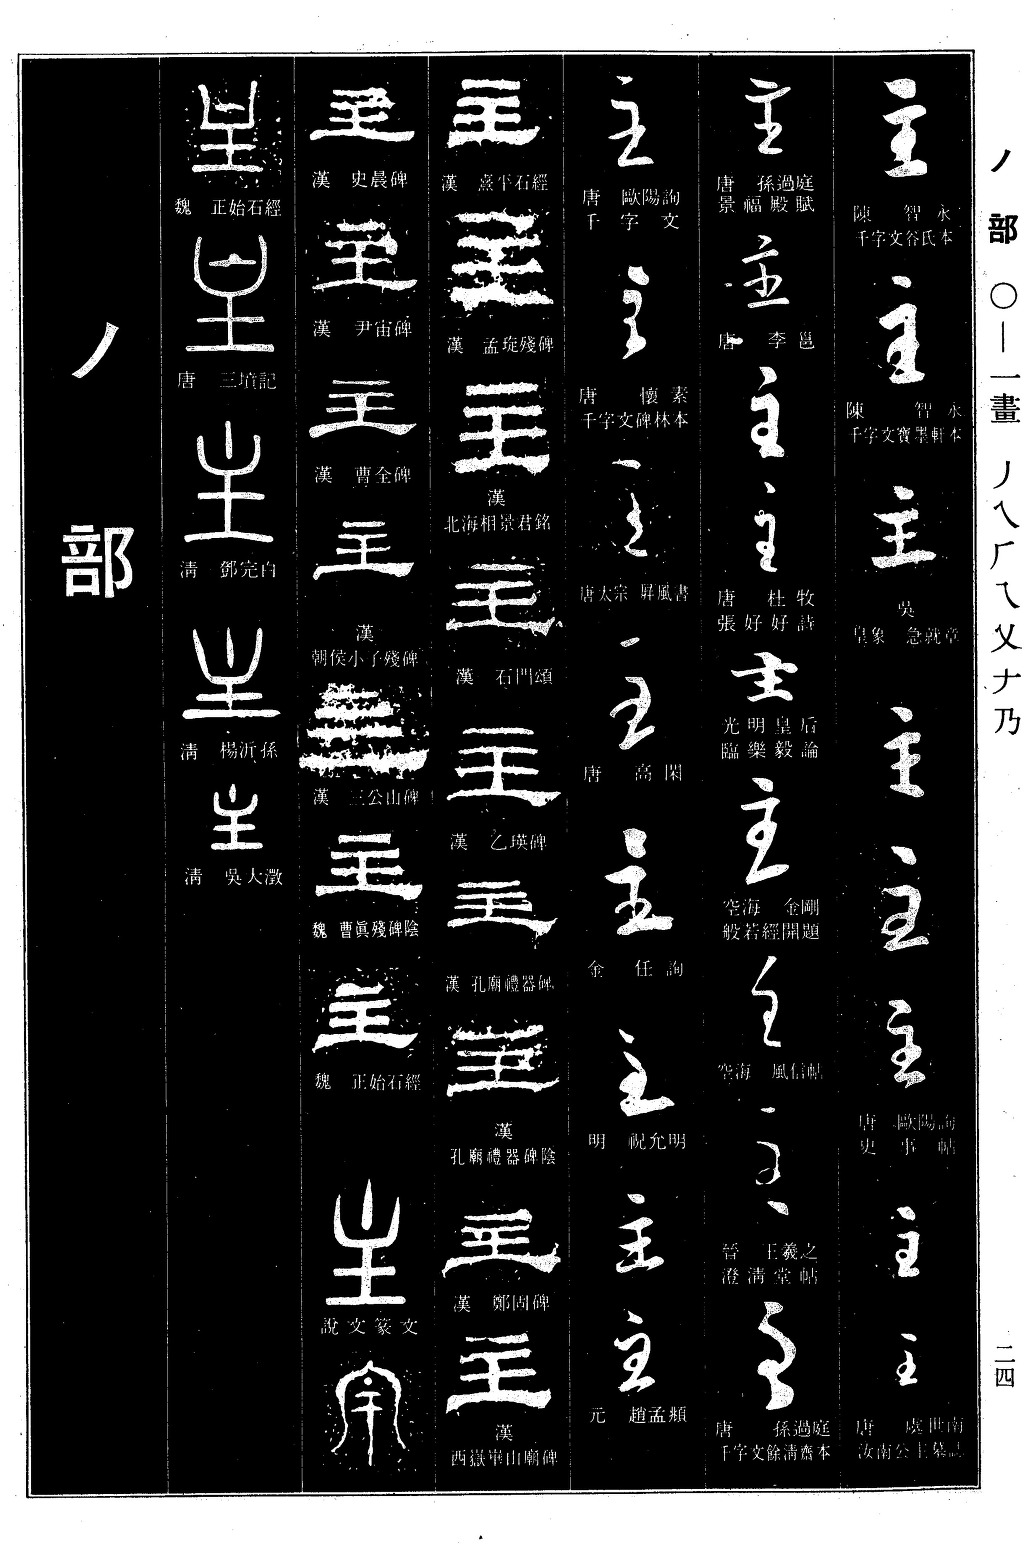 丿部 〇—一畫 丿乀𠂆乁乂𠂇乃
二四
主
陳 智永
千字文谷氏本
主
陳 智永
千字文寶墨軒本
主
吳
皇象 急就章
主
主
主
唐 歐陽詢
史事帖
主
主
唐 虞世南
汝南公主墓誌
主
唐 孫過庭
景福殿賦
主
唐 李邕
主
主
唐 杜牧
張好好詩
主
光明皇后
臨樂毅論
主
空海 金剛
般若經開題
主
空海 風信帖
主
晉 王羲之
澄清堂帖
主
唐 孫過庭
千字文餘清齋本
主
唐 歐陽詢
千字文
主
唐 懷素
千字文碑林本
主
唐太宗 屛風書
主
唐 高閑
主
金 任詢
主
明 祝允明
主
主
元 趙孟頫
主
漢 熹平石經
主
漢 孟琁殘碑
主
漢
北海相景君銘
主
漢 石門頌
主
漢 乙瑛碑
主
漢 孔廟禮器碑
主
漢
孔廟禮器碑陰
主
漢 鄭固碑
主
漢
西嶽華山廟碑
主
漢 史晨碑
主
漢 尹宙碑
主
漢 曹全碑
主
漢
朝侯小子殘碑
主
漢 三公山碑
主
魏 曹眞殘碑陰
主
魏 正始石經
主
說文篆文
魏 正始石經
主
唐 三墳記
主
清 鄧完白
主
清 楊沂孫
主
清 吳大澂
丿部